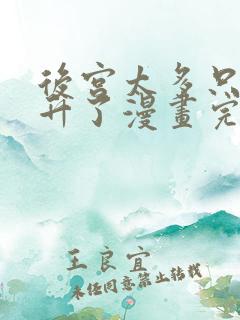 後宮太多
了漫畫完
王良宜
未經同意禁止轉載